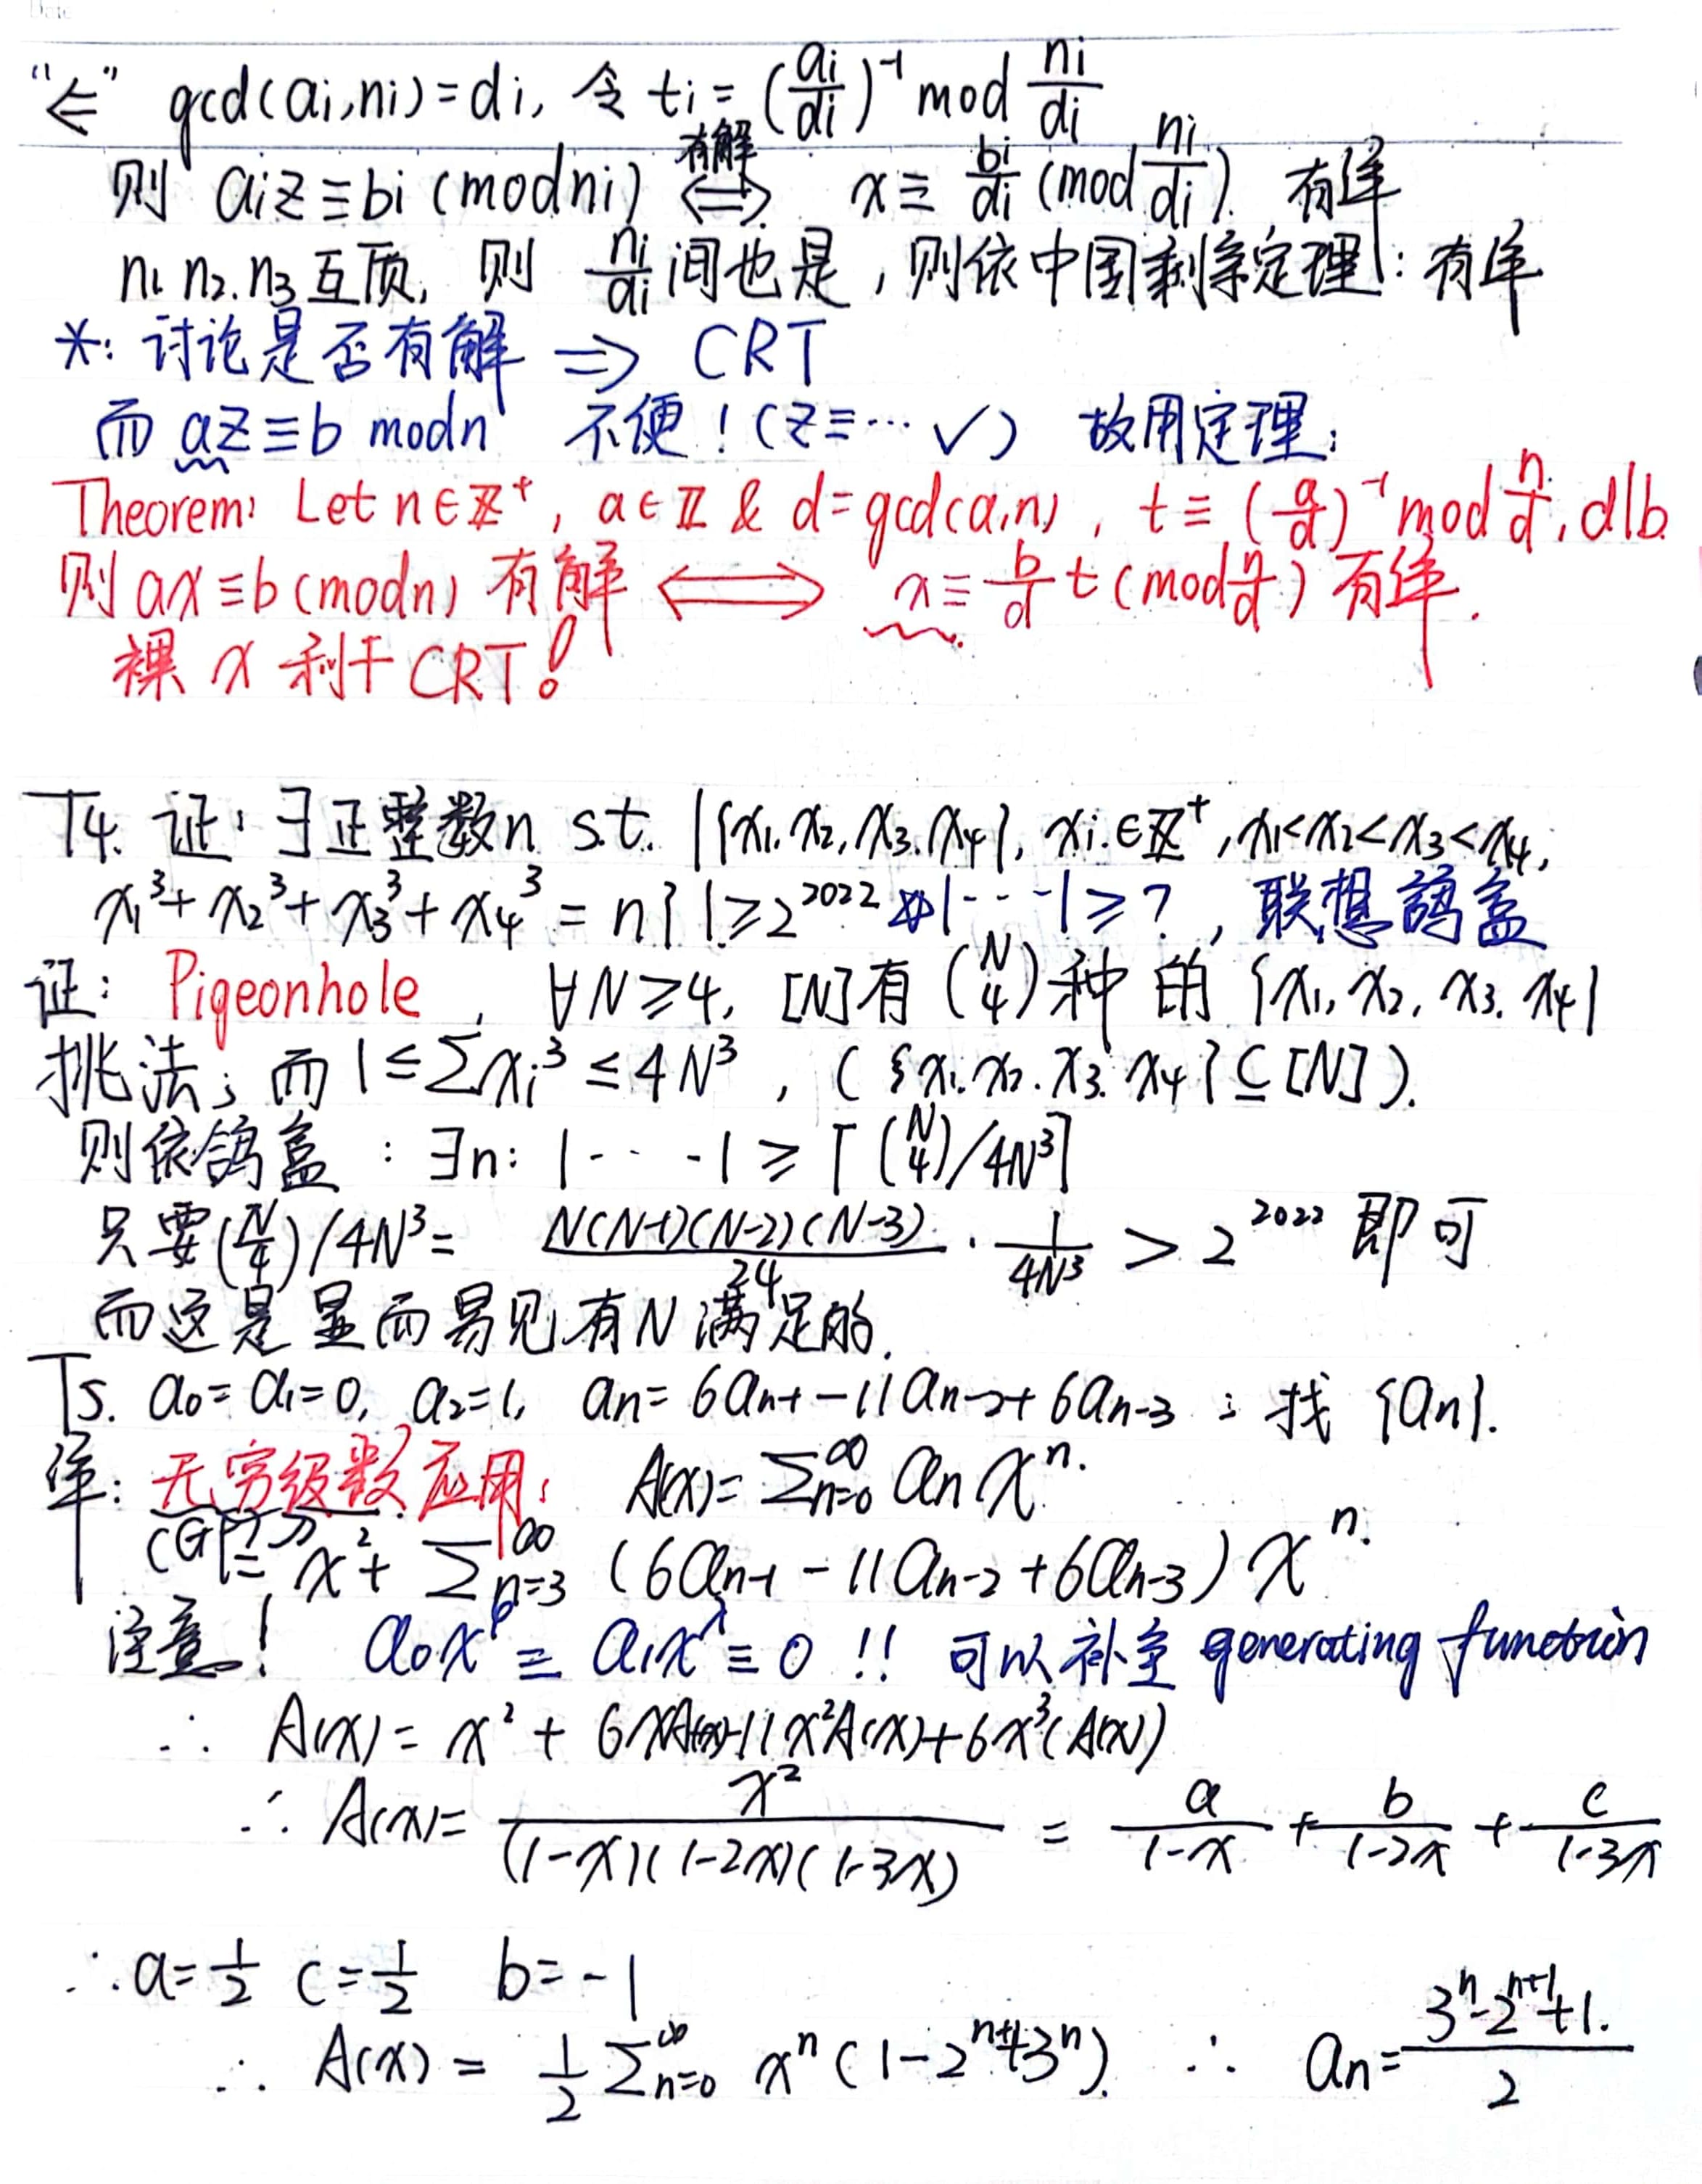 Date
"⇐" gcd(ai,ni)=di, 令 ti=(ai/di)^-1 mod ni/di
则 aiz≡bi (mod ni) 有解⟺ x≡ bi/di (mod ni/di). 有解
n1 n2.n3互质, 则 ni/di间也是,则依中国剩余定理:有解
*: 讨论是否有解 ⟹ CRT
而 az≡b modn 不便!(z≡… ✓) 故用定理:
Theorem: Let n∈ℤ^+, a∈ℤ & d=gcd(a,n), t≡(a/d)^-1 mod n/d, d|b.
则 ax≡b(modn) 有解 ⟺ x≡ b/d t (mod n/d) 有解.
裸 x 利于CRT!
T4. 证: ∃正整数n s.t. |{x1.x2,x3.x4}, xi∈ℤ^+, x1<x2<x3<x4,
x1^3+x2^3+x3^3+x4^3=n}|≥2^2022 |---|≥?, 联想鸽盒
证: Pigeonhole, ∀N≥4, [N]有 (N 4)种 的 {x1,x2,x3.x4}
挑法; 而 1≤∑xi^3≤4N^3, ({x1.x2.x3.x4}⊆[N]).
则依鸽盒: ∃n: |---|≥⌈(N 4)/4N^3⌉
只要(N 4)/4N^3= N(N-1)(N-2)(N-3)/24 · 1/4N^3 > 2^2022 即可
而这是显而易见有N满足的.
T5. a0=a1=0, a2=1, an=6an-1-11an-2+6an-3 ; 找 {an}.
解: 无穷级数应用: A(x)=∑n=0^∞ an x^n.
(GF) = x^2+∑n=3^∞ (6an-1-11an-2+6an-3) x^n.
注意! a0x^0=a1x^1=0 !! 可以补全 generating function
∴ A(x)=x^2+6xA(x)-11x^2A(x)+6x^3(A(x))
∴ A(x)= x^2/(1-x)(1-2x)(1-3x) = a/1-x + b/1-2x + c/1-3x
∴ a=1/2 c=1/2 b=-1
∴ A(x)= 1/2 ∑n=0^∞ x^n (1-2^n+1+3^n). ∴ an= 3^n-2^n+1+1./2